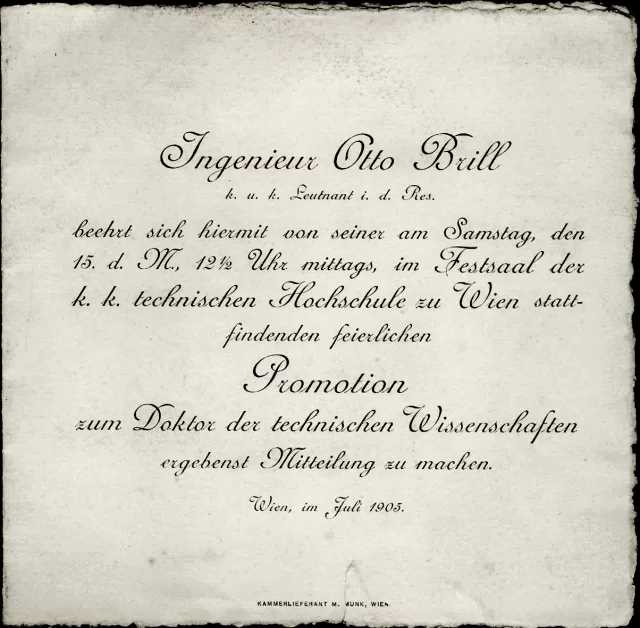 Ingenieur Otto Brill
k. u. k. Leutnant i. d. Res.
beehrt sich hiermit von seiner am Samstag, den
15. d. M., 12½ Uhr mittags, im Festsaal der
k. k. technischen Hochschule zu Wien statt-
findenden feierlichen
Promotion
zum Doktor der technischen Wissenschaften
ergebenst Mitteilung zu machen.
Wien, im Juli 1905.
KAMMERLIEFERANT M. MUNK, WIEN.